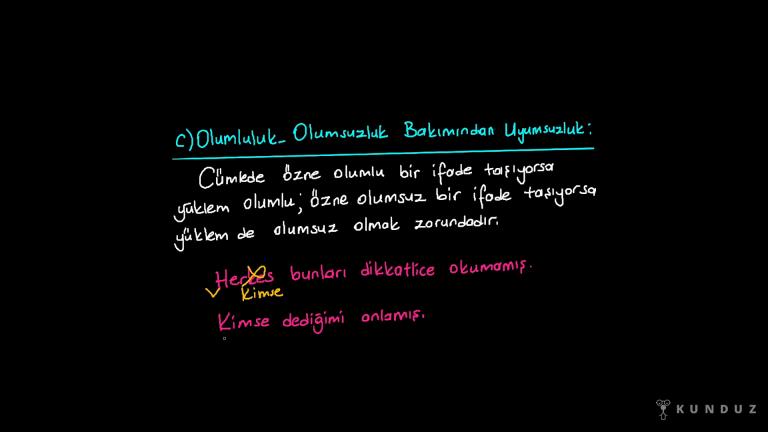 c) Olumluluk - Olumsuzluk Bakımından Uyumsuzluk:
Cümlede özne olumlu bir ifade taşıyorsa
yüklem olumlu; özne olumsuz bir ifade taşıyorsa
yüklem de olumsuz olmak zorundadır.
Herkes bunları dikkatlice okumamış.
Kimse
Kimse dediğimi anlamış.
KUNDUZ